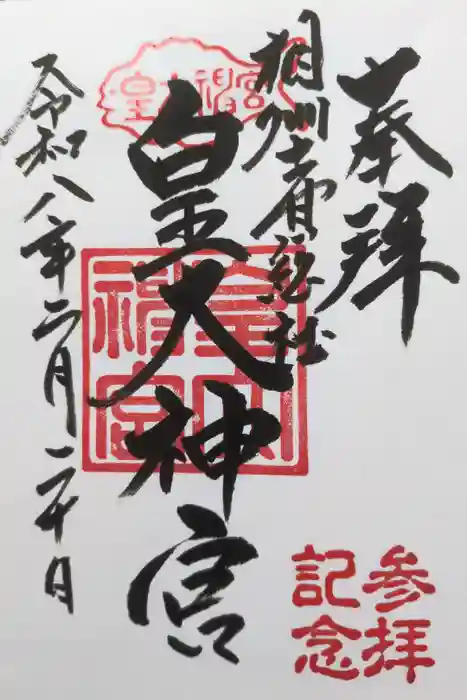 奉拝
相州土甘郷総社
皇大神宮
皇大神宮
皇大神宮
令和八年二月二十日
参拝
記念